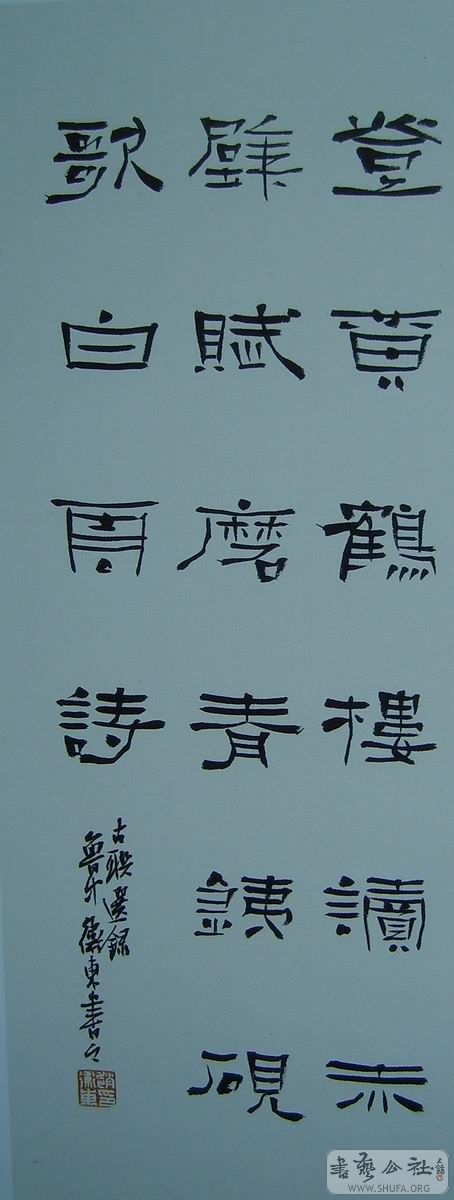 登黄鶴樓讀赤
壁賦磨青銕硯
歌白詩
古聯選録
魯中衛東書之
書藝公社
WWW.SHUFA.ORG